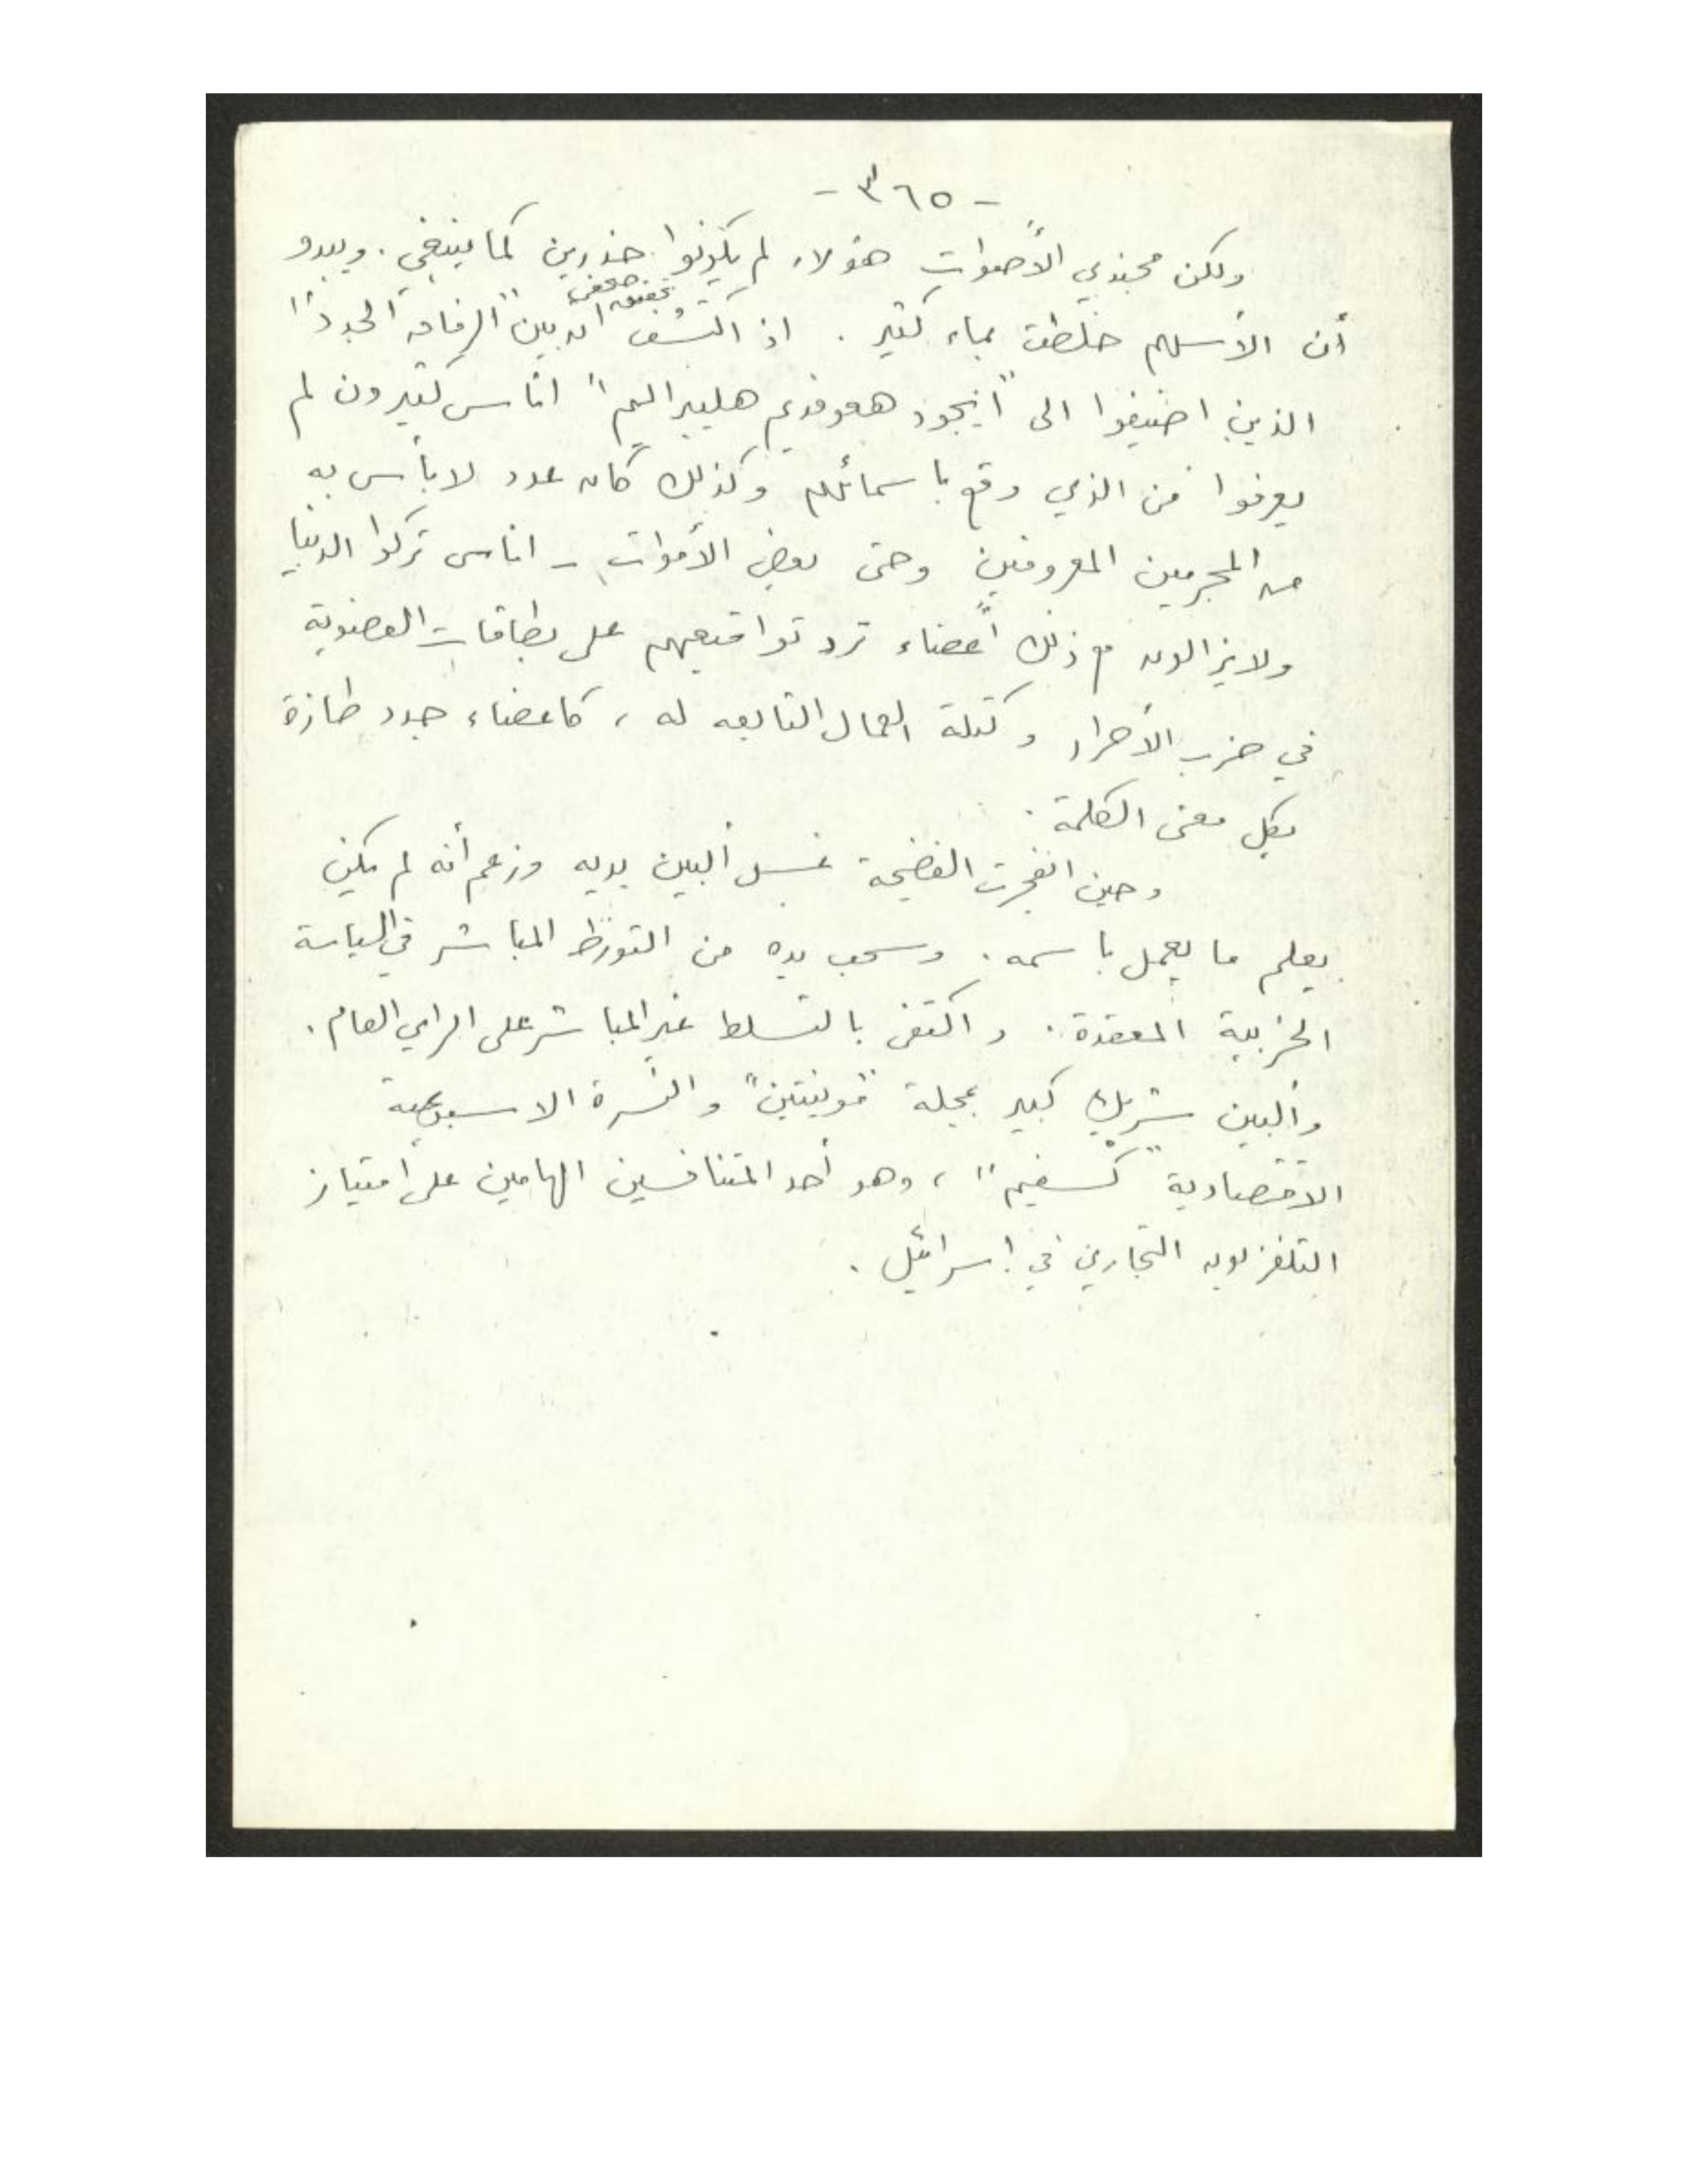 - ٣٦٥ -
ولكن مجندي الأصوات هؤلاء لم يكونوا حذرين كما ينبغي. ويبدو
أن الأسهم خلطت بماء كثير. اذ اكتشف تحقيق صحفي ان بين "الرفاق الجدد"
الذين اضيفوا الى "ايجود هعوفديم هليبراليم" اناس كثيرون لم
يعرفوا من الذي وقع باسمائهم وكذلك كان عدد لا بأس به
من المجرمين المعروفين وحتى بعض الأموات - اناس تركوا الدنيا
ولا يزالون مع ذلك أعضاء ترد تواقيعهم على بطاقات العضوية
في حزب الأحرار وكتلة العمال التابعه له، كاعضاء جدد طازة
بكل معنى الكلمة.
وحين انفجرت الفضيحة غسل ألبين يديه وزعم أنه لم يكن
يعلم ما يعمل باسمه. وسحب يده من التورط المباشر في السياسة
الحزبية المعقدة. واكتفى بالتسلط غير المباشر على الراي العام.
وألبين شريك كبير بمجلة "مونيتين" والنشرة الاسبوعية
الاقتصادية "كسفيم"، وهو أحد المتنافسين الهامين على امتياز
التلفزيون التجاري في إسرائيل.